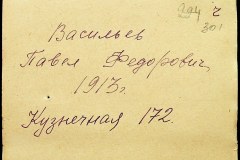 ч
301
Васильев
Павел Федорович,
1913 г.
Кузнечная 172.